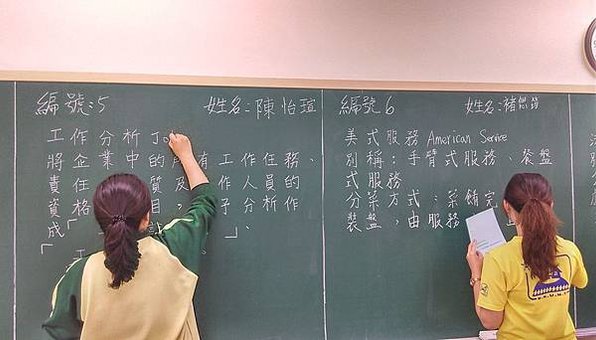 編號:5
姓名:陳怡瑄
工作分析Jo
將企業中的 有工作任務、
責任 質及 作人員的
資格 目。 子分析作
成「 」、
「工
編號6
姓名:褚
美式服務 American Service
別稱:手臂式服務、餐盤
式服務
分菜方式:菜餚完
裝盤,由服務